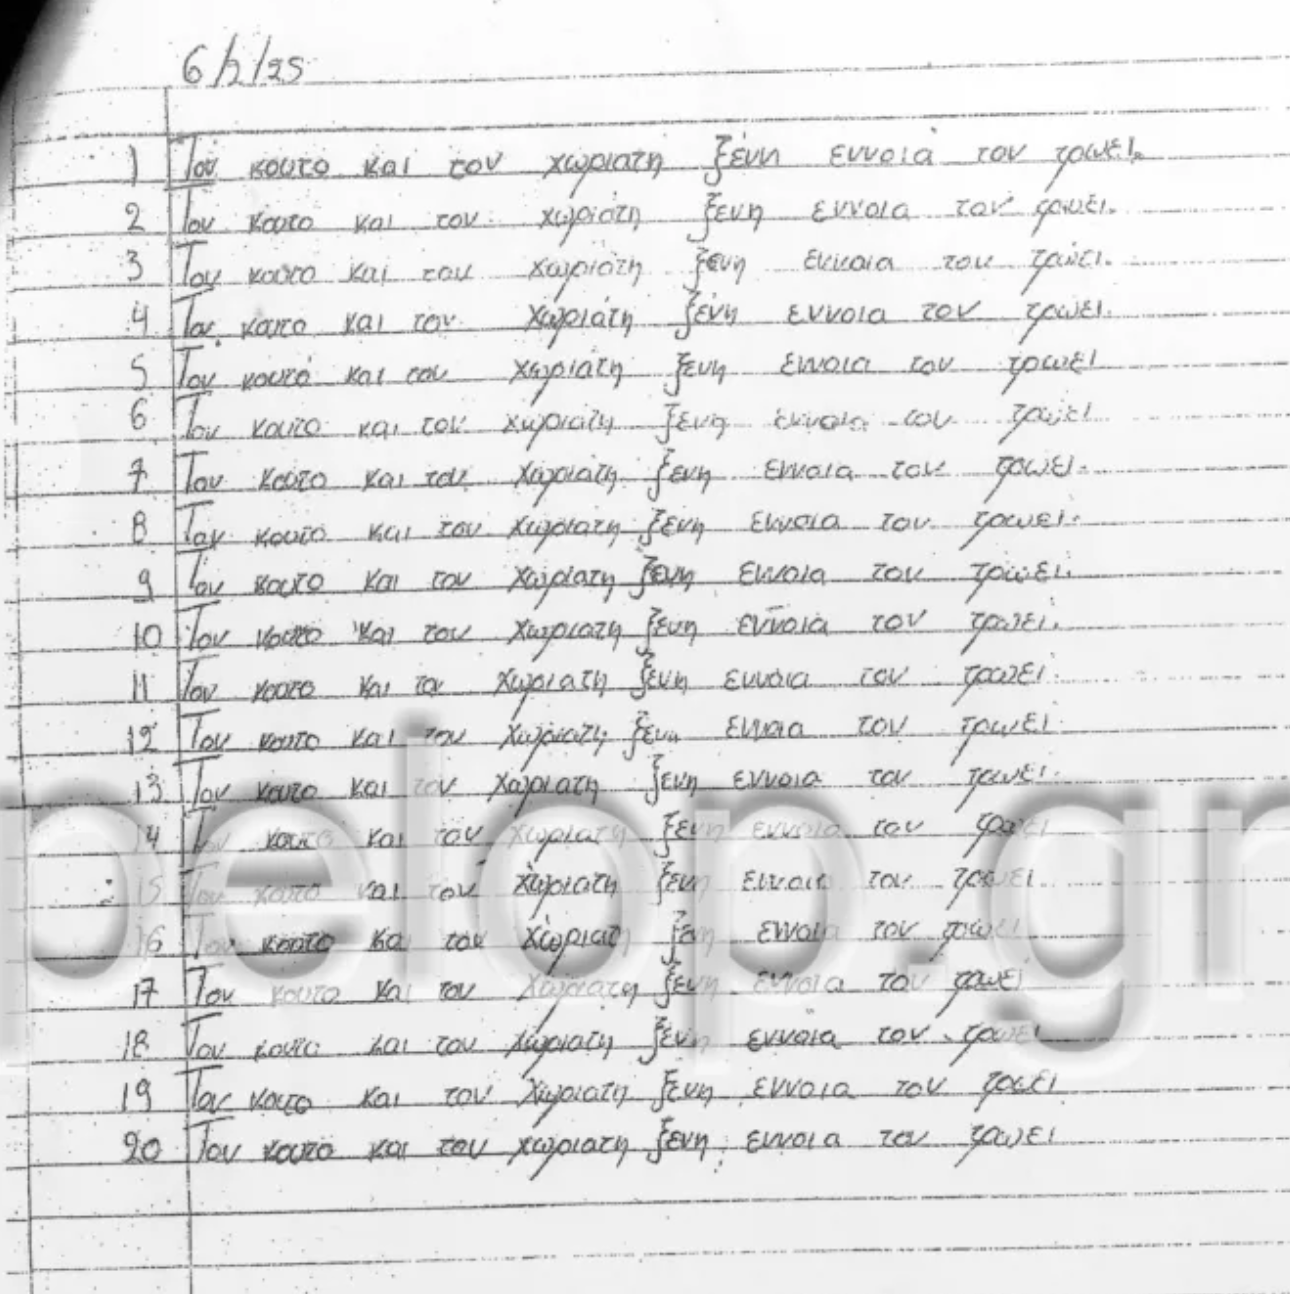 6/2/25
1 Τον κουτο και τον χωριατη ξένη εννοιά τον τρωει.
2 Τον κουτο και τον χωριάτη ξενη εννοια τον τρωει.
3 Τον κουτο και τον χωριάτη ξενη εννοια τον τρώει.
4 Τον κουτο και τον χωριάτη ξένη εννοια τον τρωει.
5 Τον κουτό και τον χωριάτη ξενη εννοια τον τρωει
6 Τον κουτο και τον χωριατη ξενη εννοια τον τρώει
7 Τον κουτο και τον χωριατη ξενη εννοια τον τρωει.
8 Τον κουτο και τον χωριατη ξενη εννοια τον τρωει.
9 Τον κουτο και τον χωριατη ξενη εννοια τον τρωει.
10 Τον κουτο και τον χωριατη ξενη εννοια τον τρωει.
11 Τον κουτο και τον χωριατη ξενη εννοια τον τρωει
12 Τον κουτο και τον χωριατη ξενη εννοια τον τρωει
13 Τον κουτο και τον χωριατη ξενη εννοια τον τρωει.
14 Τον κουτο και τον χωριατη ξενη εννοια τον τρωει
15 Τον κουτο και τον χωριατη ξενη εννοια τον τρωει
16 Τον κουτο και τον χωριατη ξενη εννοια τον τρωει
17 Τον κουτο και τον χωριατη ξενη εννοια τον τρωει
18 Τον κουτο και τον χωριατη ξενη εννοια τον τρωει
19 Τον κουτο και τον χωριατη ξενη εννοια τον τρωει
20 Τον κουτο και τον χωριατη ξενη εννοια τον τρωει
pelop.gr